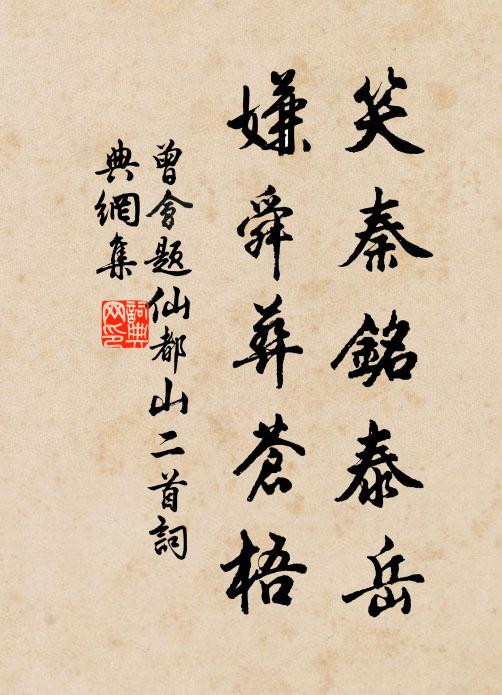 笑秦銘泰岳
嫌舜葬蒼梧
曾會題仙都山二首詞
典網集
詞典网印